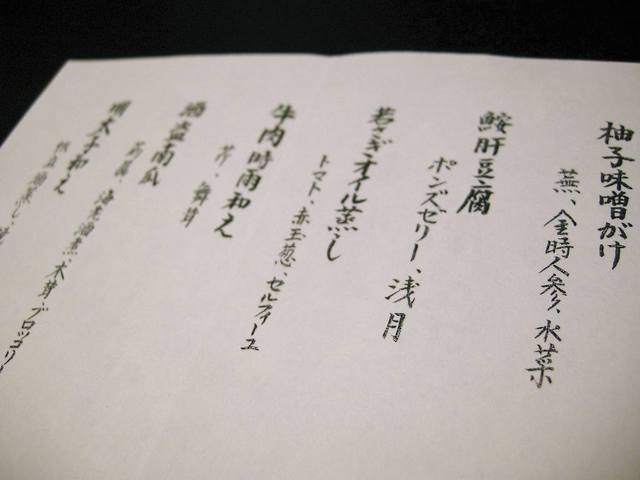 柚子味噌がけ
蕪、金時人参、水菜
鮟肝豆腐
ポンズゼリー、浅月
若さぎオイル蒸し
トマト、赤玉葱、セルフィーユ
牛肉時雨和え
芹、舞茸
南瓜
海老酒煮、木茸、ブロッコリー
明太子和え